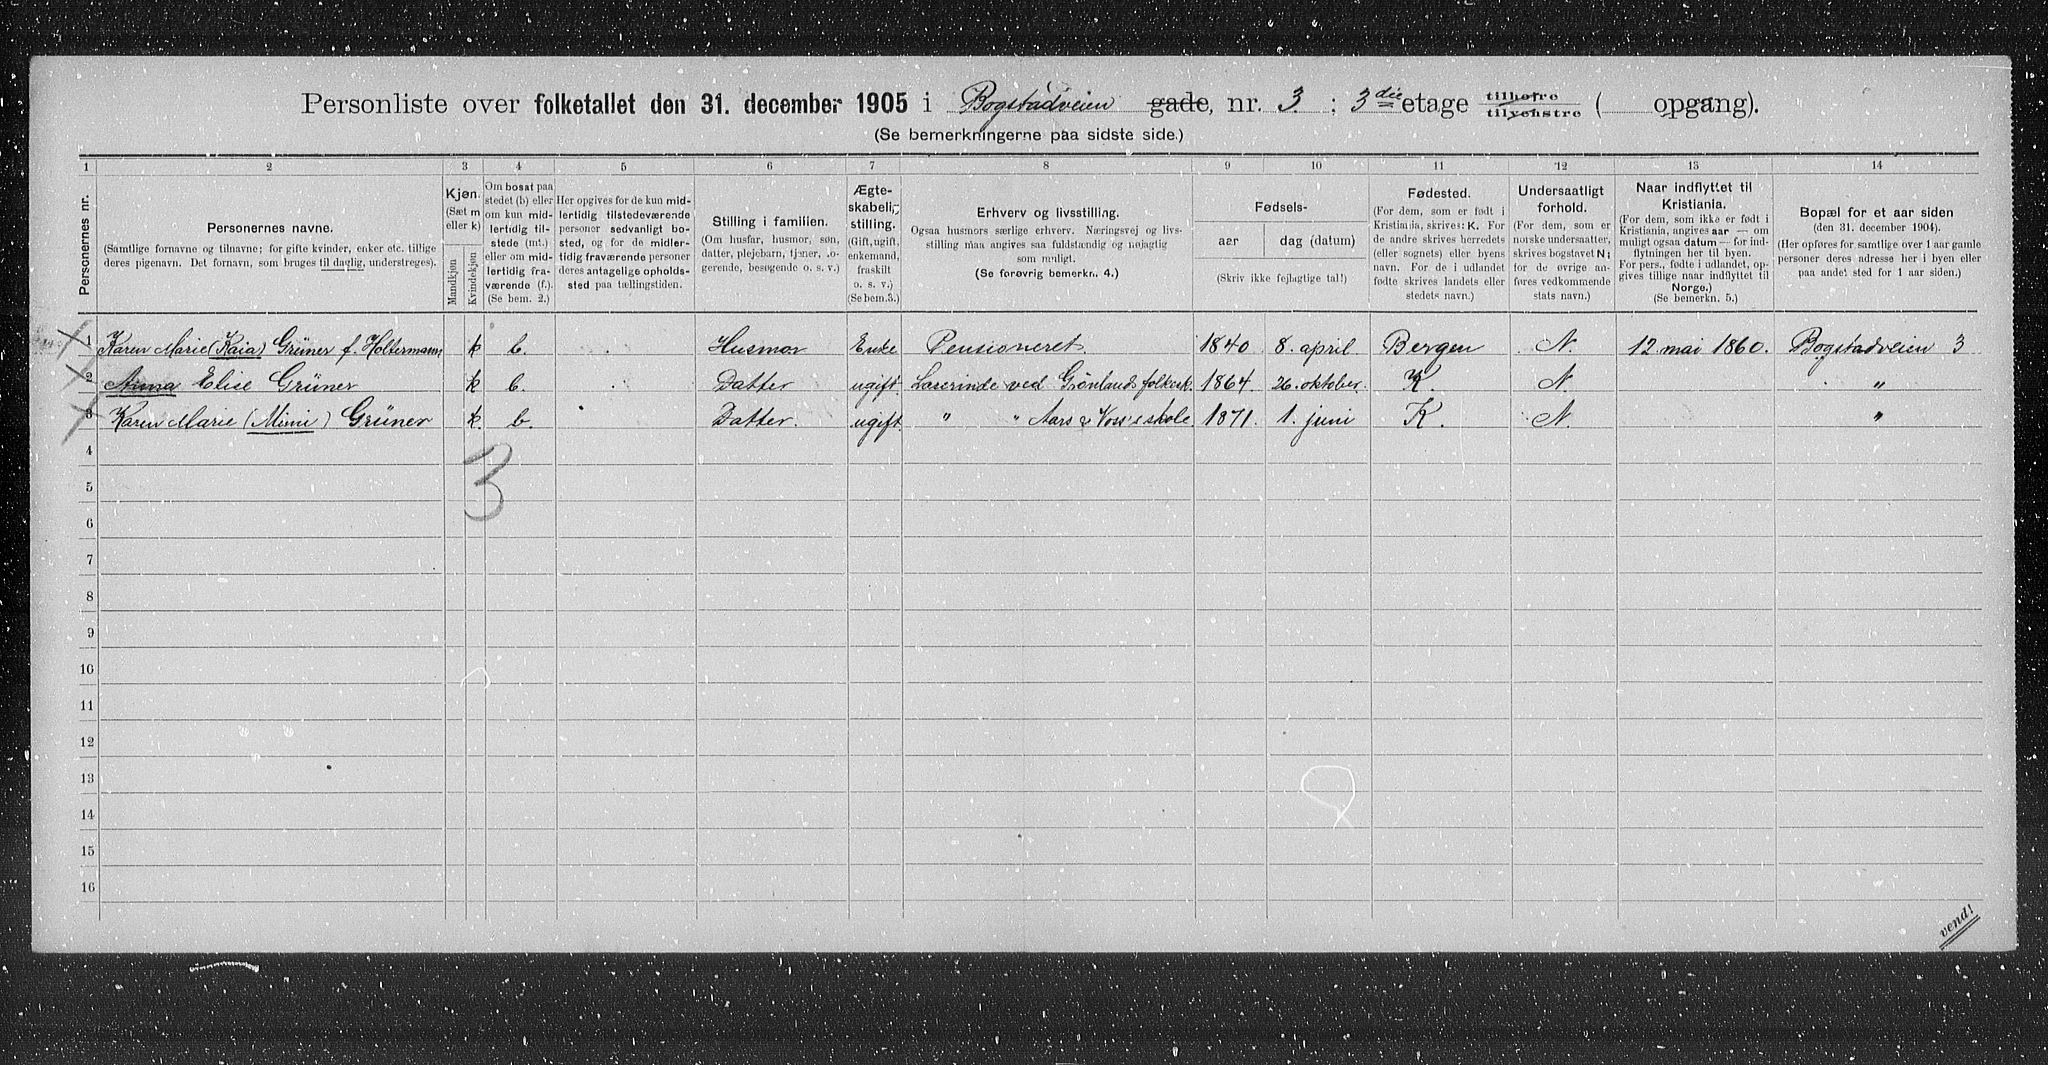 Personliste over folketallet den 31. december 1905 i Bogstadveien gade, nr. 3 ; 3die etage tilhøire tilvenstre ( opgang).
(Se bemerkningerne paa sidste side.)
1 2 3 4 5 6 7 8 9 10 11 12 13 14
Personernes nr.
Personernes navne.
(Samtlige fornavne og tilnavne; for gifte kvinder, enker etc. tillige
deres pigenavn. Det fornavn, som bruges til daglig, understreges).
Kjøn.
(Sæt m
eller k)
Mandkjøn
Kvindekjøn
Om bosat paa
stedet (b) eller
om kun mid-
lertidig til-
stede (mt.)
eller om mid-
lertidig fra-
værende (f.).
(Se bem. 2.)
Her opgives for de kun mid-
lertidig tilstedeværende
personer sedvanligt bo-
sted, og for de midler-
tidig fraværende personer
deres antagelige opholds-
sted paa tællingstiden.
Stilling i familien.
(Om husfar, husmor, søn,
datter, plejebarn, tjener, lo-
gerende, besøgende o. s. v.)
Ægte-
skabelig
stilling.
(Gift, ugift,
enkemand,
fraskilt
o. s. v.)
(Se bem. 3.)
Erhverv og livsstilling.
Ogsaa husmors særlige erhverv. Næringsvej og livs-
stilling maa angives saa fuldstændig og nøjagtig
som muligt.
(Se forøvrig bemerkn. 4.)
Fødsels-
aar
dag (datum)
(Skriv ikke fejlagtige tal!)
Fødested.
(For dem, som er født i
Kristiania, skrives: K. For
de andre skrives herredets
(eller sognets) eller byens
navn. For de i udlandet
fødte skrives landets eller
stedets navn.)
Undersaatligt
forhold.
(For dem, som er
norske undersaatter,
skrives bogstavet N;
for de øvrige an-
føres vedkommende
stats navn.)
Naar indflyttet til
Kristiania.
(For dem, som ikke er født i
Kristiania, angives aar — om
muligt ogsaa datum — for ind-
flytningen her til byen.
For pers., fødte i udlandet, op-
gives tillige naar indflyttet til
Norge.)
(Se bemerkn. 5.)
Bopæl for et aar siden
(den 31. december 1904).
(Her opføres for samtlige over 1 aar gamle
personer deres adresse her i byen eller
paa andet sted for 1 aar siden.)
1 Karen Marie (Kaia) Grüner f. Holtermann k b. Husmor Enke Pensioneret 1840 8. april Bergen N. 12 mai 1860. Bogstadveien 3
2 Anna Elise Grüner k b. Datter ugift Lærerinde ved Grønlands folkesk. 1864. 26. oktober. K. N. "
3 Karen Marie (Mimi) Grüner k b. Datter. ugift. " " Aars & Voss's skole. 1871. 1. juni K. N. "
3
4
5
6
7
8
9
10
11
12
13
14
15
16
vend!